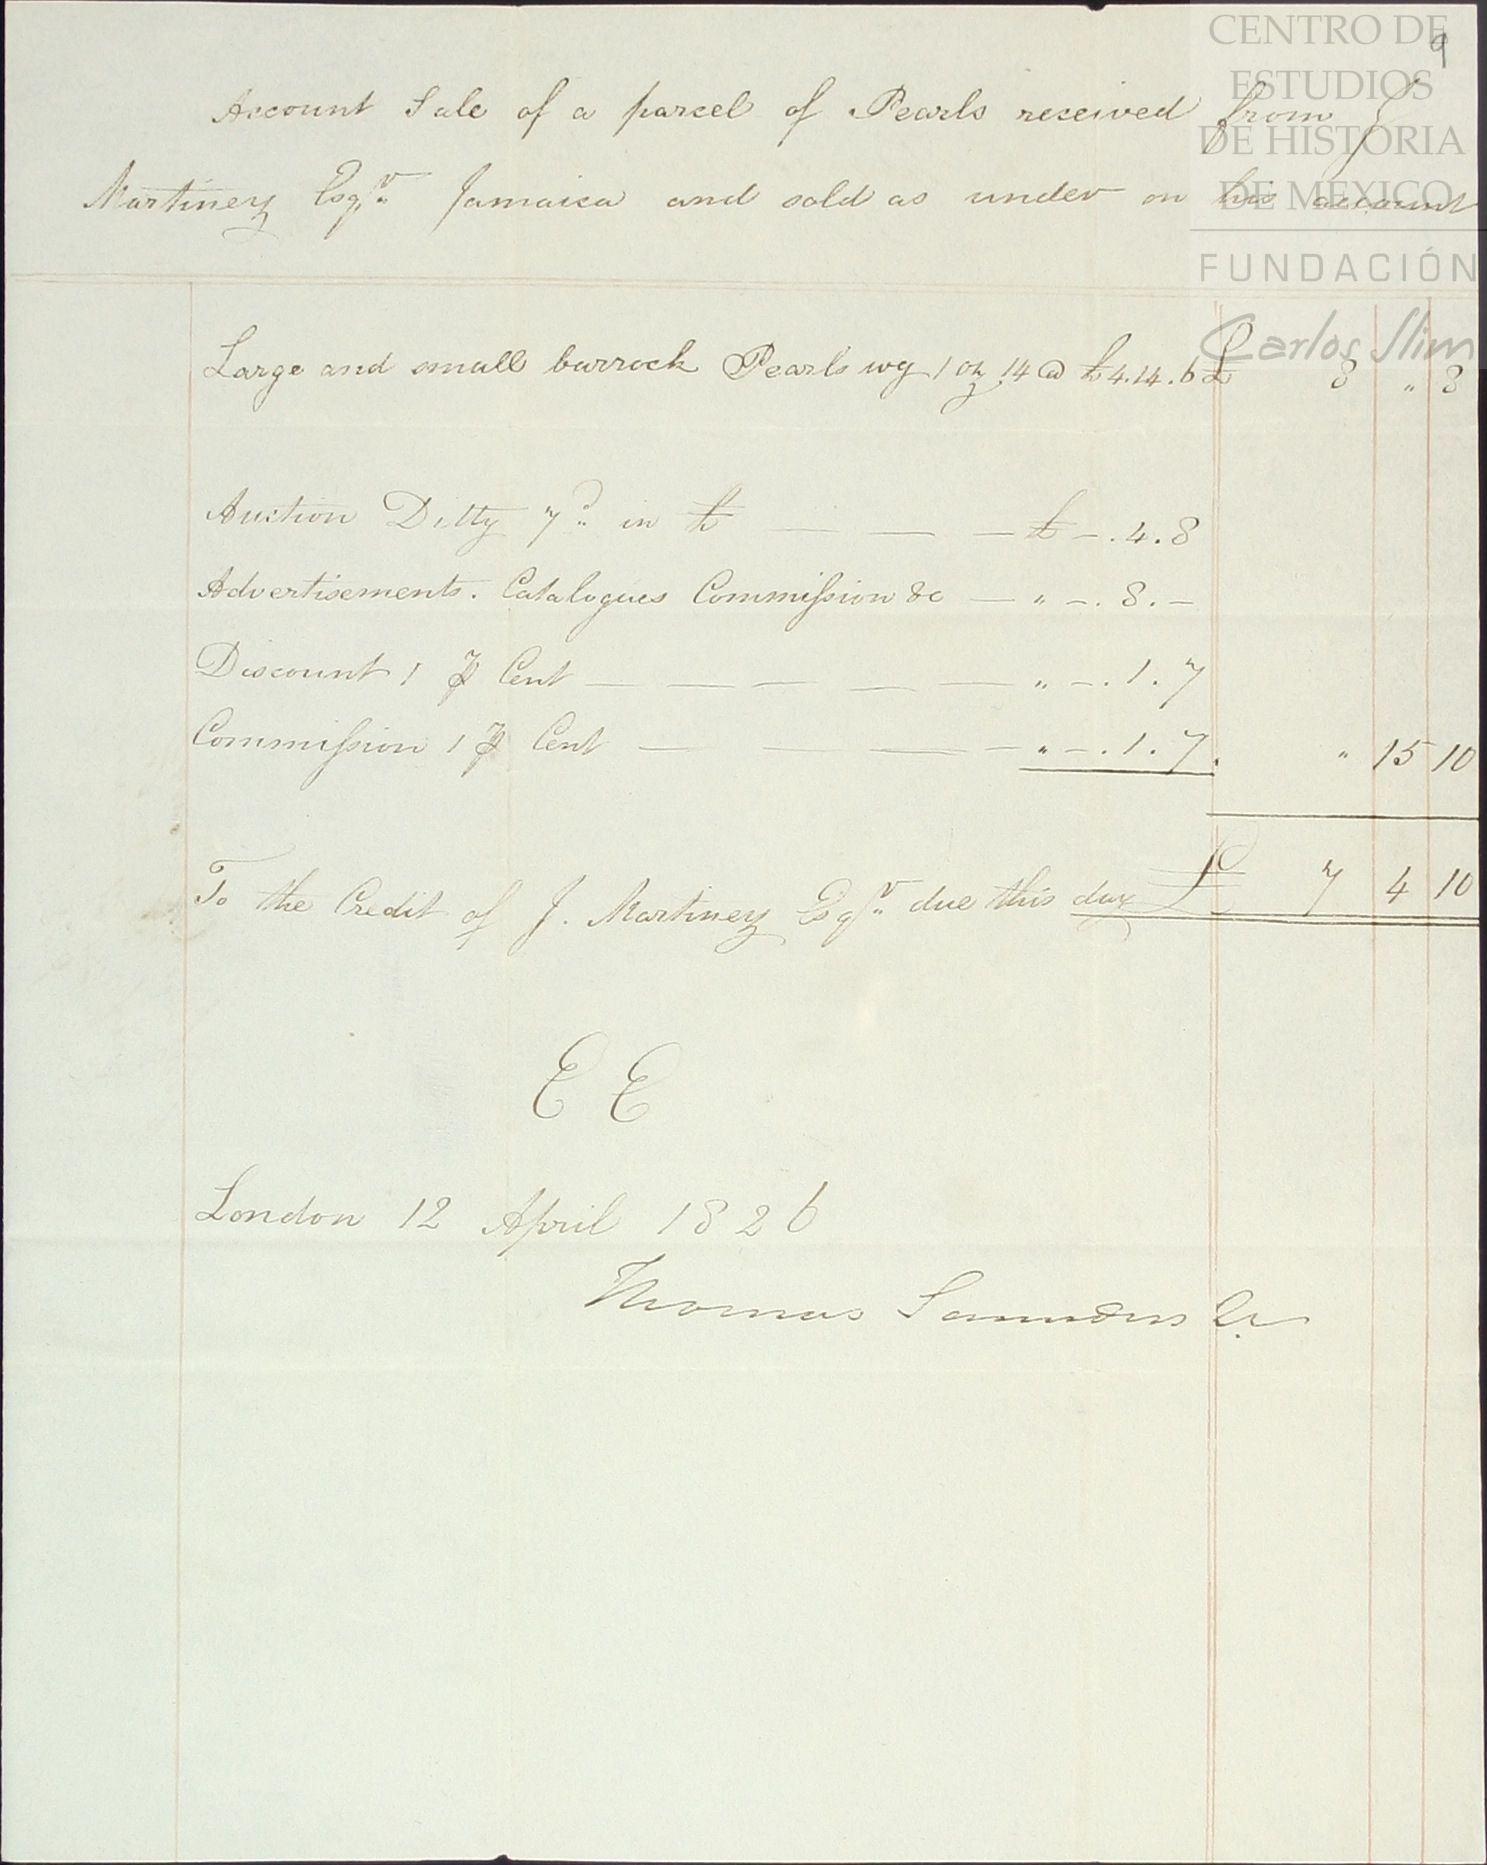 CENTRO DE
ESTUDIOS
DE HISTORIA
DE MÉXICO
FUNDACIÓN
Carlos Slim
9
Account Sale of a parcel of Pearls received from J
Martinez Esqr. Jamaica and sold as under on his account
Large and small barrock Pearls wg 1 oz 14 @ £4.14.6 £ 8 " 8
Auction Dutty 7d. in £ — — — £ –.4.8
Advertisements. Catalogues Commission &c — " –. 8. –
Discount 1 ⅌ Cent — — — — — " –. 1. 7
Commission 1 ⅌ Cent — — — — " –. 1. 7. " 15 10
To the Credit of J. Martinez Esqr. due this day £ 7 4 10
E E
London 12 April 1826
Thomas Saunders